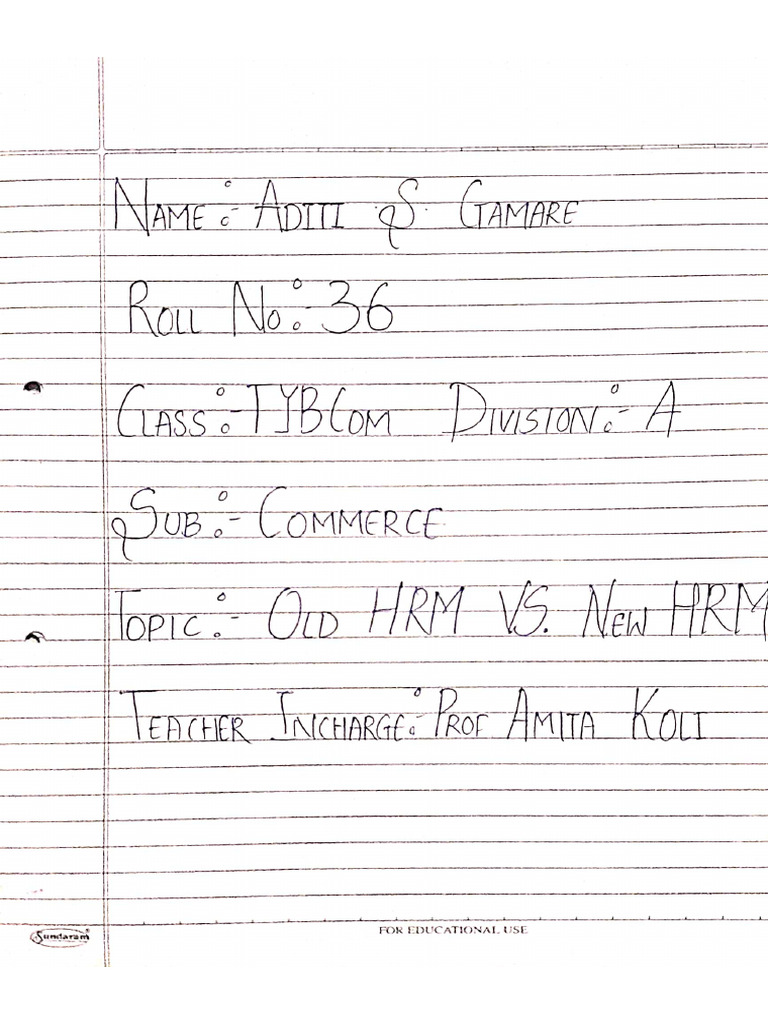 NAME :- ADITI S. GAMARE
ROLL NO :- 36
CLASS :- TYBCOM DIVISION :- A
SUB :- COMMERCE
TOPIC :- OLD HRM VS. NEW HRM
TEACHER INCHARGE :- PROF AMITA KOLI
Sundaram
FOR EDUCATIONAL USE